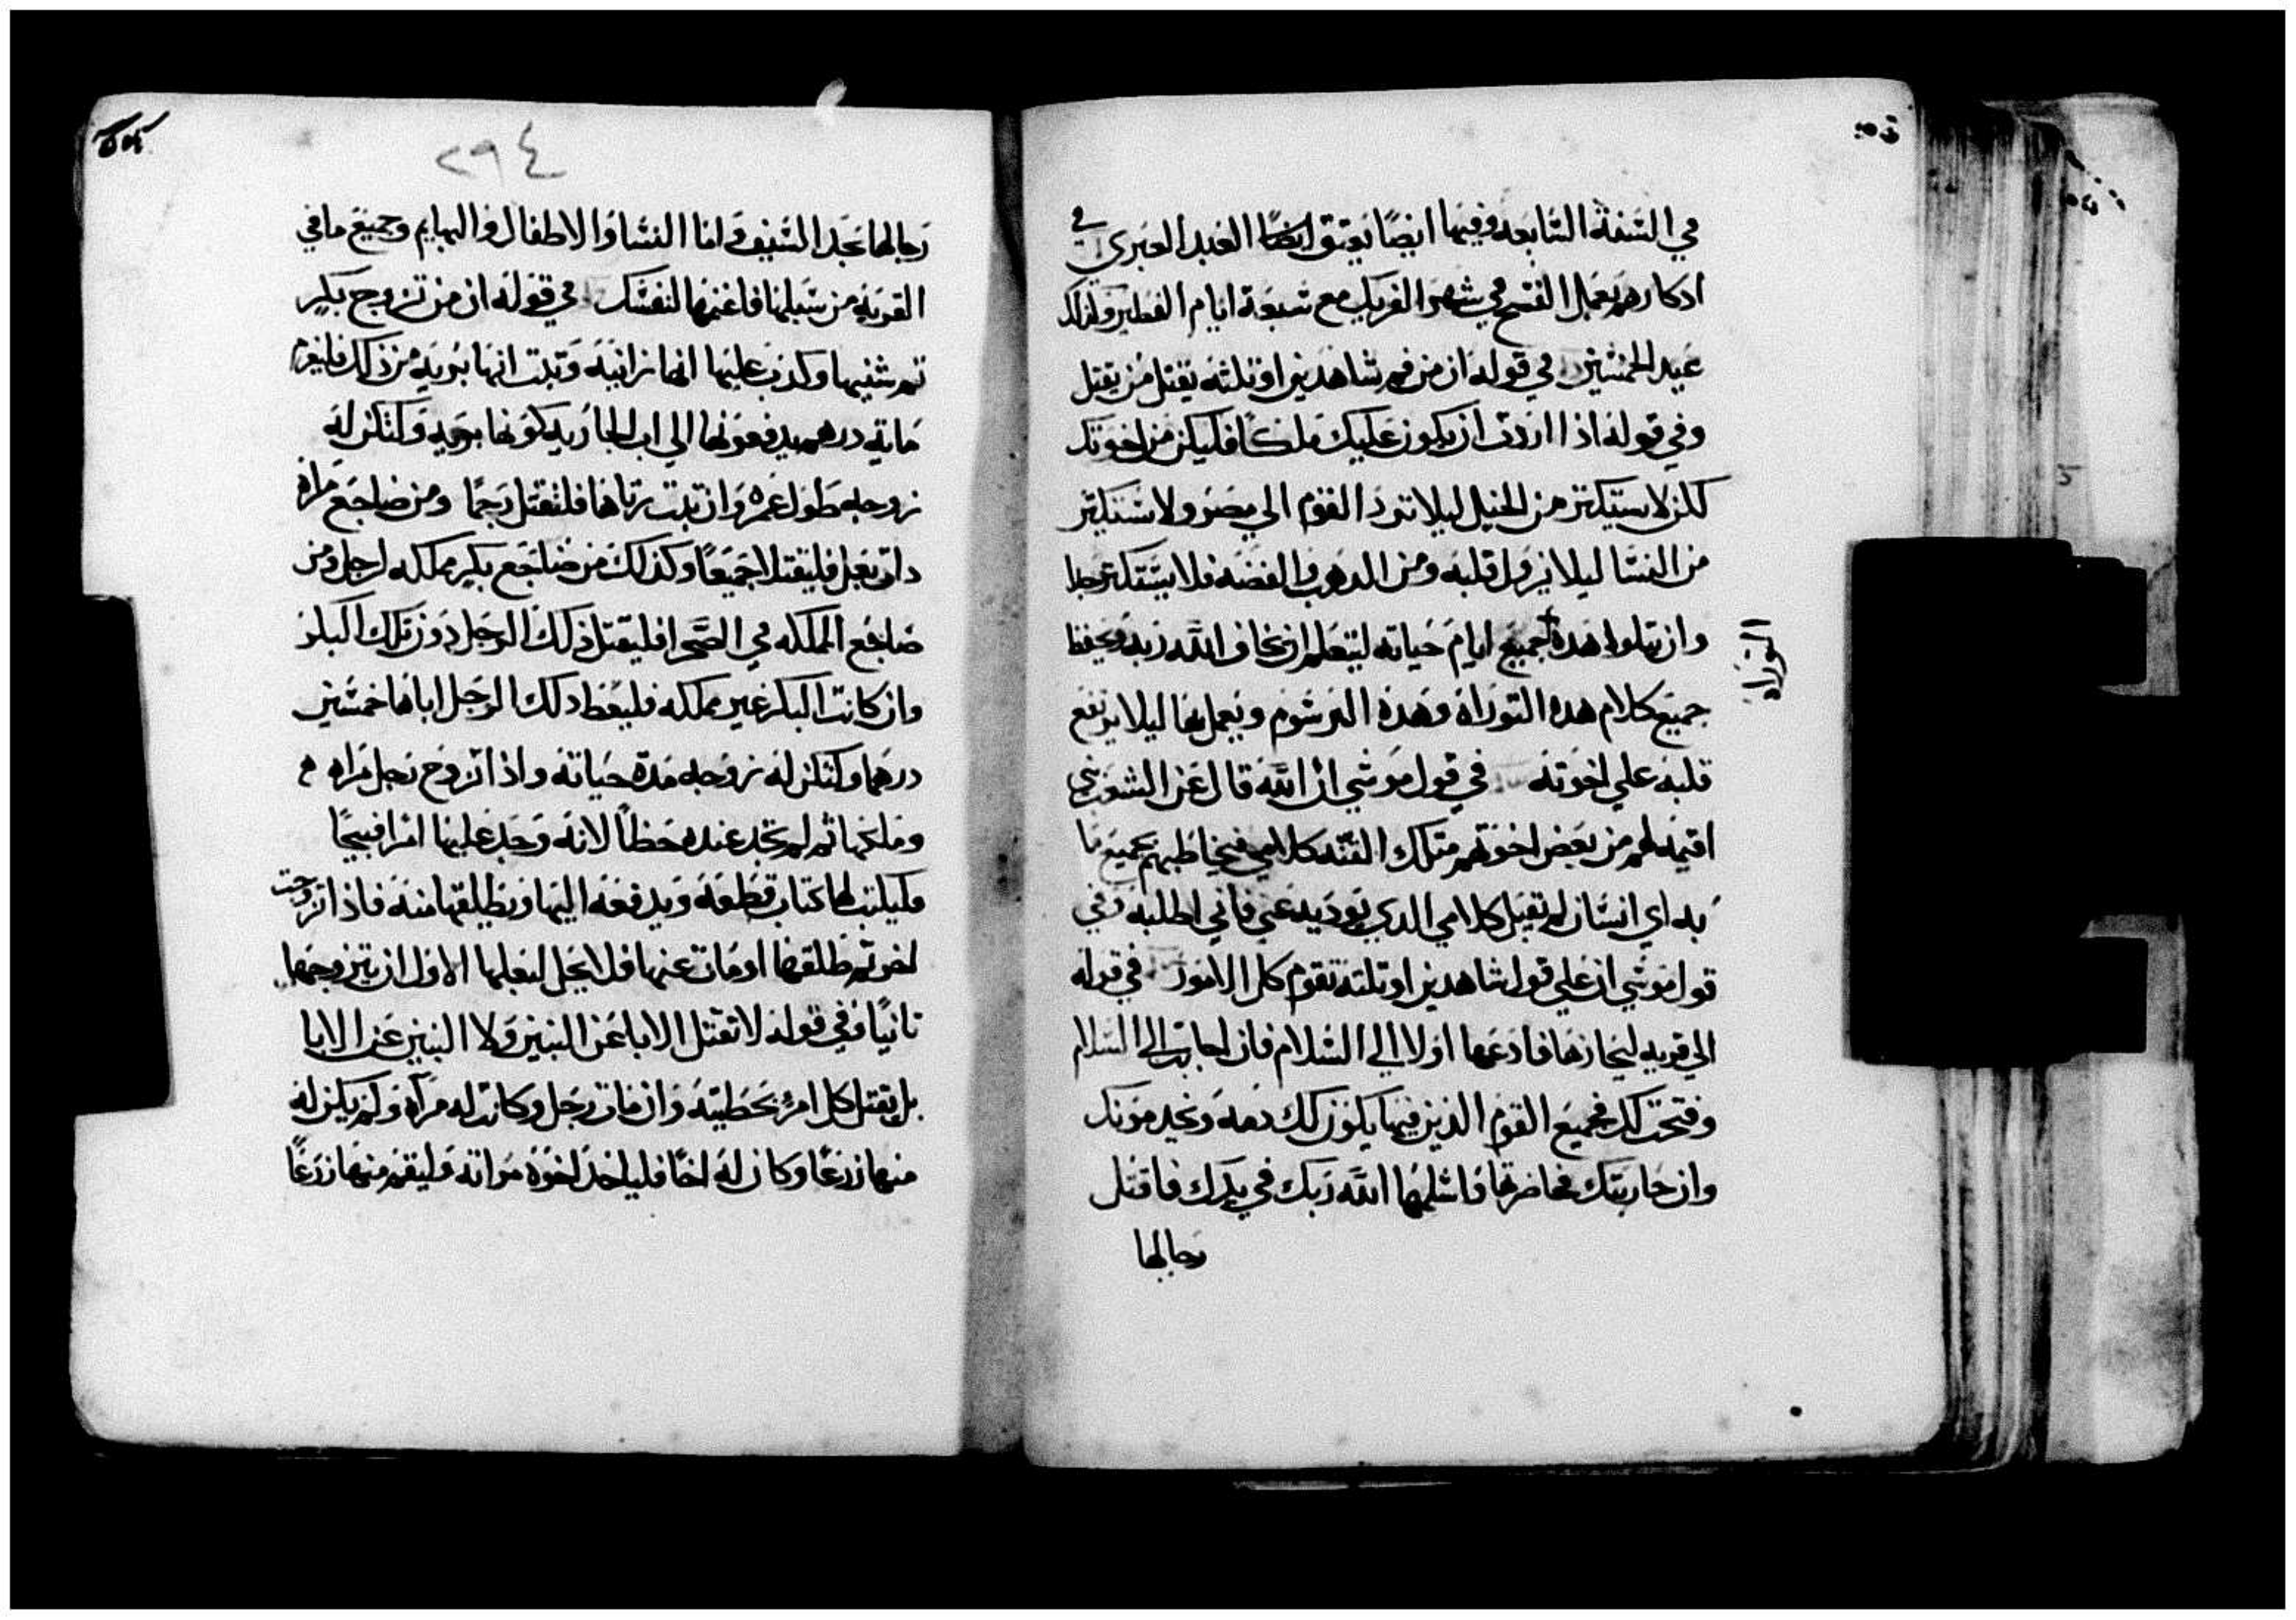 في السنة السابعه وفيها ايضًا يعتق ايضًا العبد العبري في
ادكارهم بعمل الفسح في شهر الفريك مع سبعة ايام الفطير وكذلك
عيد الخمسين في قوله ان من فم شاهدين او ثلثه يقتل من يقتل
وفي قوله اذا اردت ان يكون عليك ملكًا فليكن من اخوتك
لكن لا يستكتر من الخيل ليلا تود القوم الي مصر ولا يستكتر
من النسا ليلا يزول قلبه ومن الدهب والفضه فلا يستكتر جدا
وان يتلوا هده جميع ايام حياته ليتعلم ان يخاف الله ربه ويحفظ
جميع كلام هده التوراة وهده الرسوم ويعمل بها ليلا يرتفع
قلبه علي اخوته في قول موسي ان الله قال عن الشعب
اقيم لهم من بعض اخوتهم متلك القنه كلامي فيخاطبهم بجميع ما
به اي انسان لم يقبل كلامي الدي يوديه عني فاني اطلبه وفي
قول موسي ان علي قول شاهدين او تلته تقوم كل الامور في قوله
الي قريه ليحاربها فادعها اولا الي السلام فان اجابت الي السلام
وفتحت لك فجميع القوم الذين فيها يكون لك دمه وعبدمونك
وان حاربتك فحاضرتها فاسلمها الله ربك في يدك فاقتل
رجالها
التوراه
٢٩٤
رجالها بحد السيف واما النسا والاطفال والبهايم وجميع مافي
القريه من سبلها فاغنمها لنفسك في قوله ان من تزوج بكر
تم شنيها وكدب عليها انها زانيه وتبت انها بريه من ذلك فليغرم
مايه درهم يدفعونها الي اب الجاريه كونها بريه ولتكن له
زوجه طول عمره وان تبت زناها فلتقتل رجمًا ومن ضاجع مراه
دات بعل فليقتلا جميعًا وكذلك من ضاجع بكر مملكه لرجل ومن
ضاجع المملكه في الصحرا فليقتل ذلك الرجل دون تلك البكر
وان كانت البكر غير مملكه فليعط دلك الرجل اباها خمسين
درهما ولتكن له زوجه مدة حياته واذا تزوج رجل مراه
وملكها ثم لم تجد عنده حظاً لانه وجد عليها امرا قبيحًا
وليكتب لها كتاب قطعه ويدفعه اليها ويطلقها منه فاذا تزوجت
لخر ثم طلقها او مات عنها فلا يحل لبعلها الاول ان يتزوجها
تانيًا وفي قوله لا تقتل الابا عن البنين ولا البنين عن الابا
بل يقتل كل امرؤ بخطيته وان مات رجل وكانت له مرآة ولم يكن له
منها زرعًا وكان له اخًا فلياخد اخوه مراته وليقم منها زرعًا